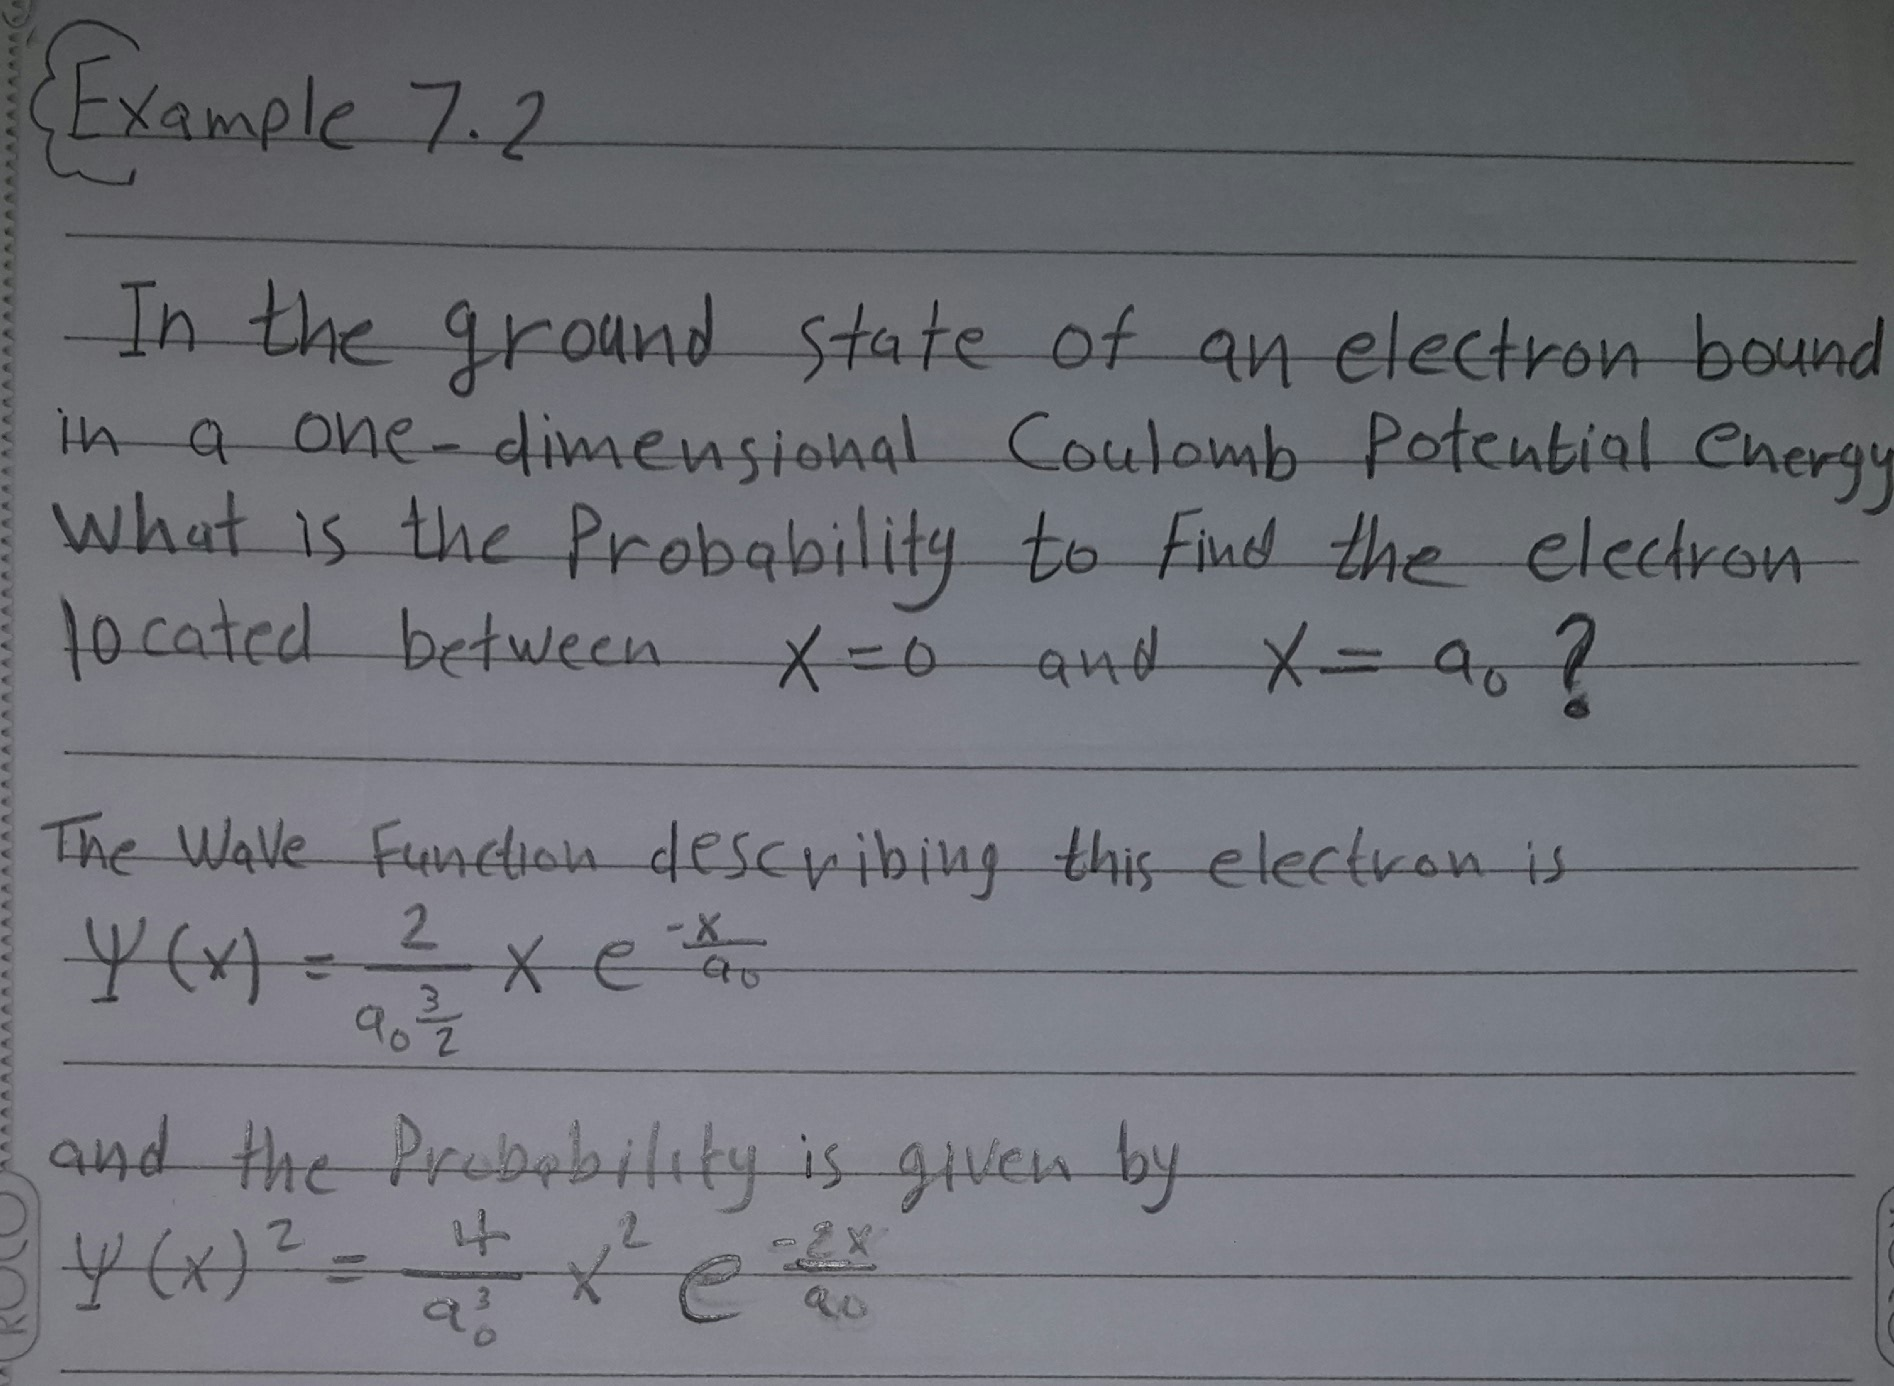 Example 7.2
In the ground state of an electron bound
in a one-dimensional Coulomb Potential energy
What is the Probability to Find the electron
located between x=0 and x= a₀ ?
The Wave Function describing this electron is
Ψ(x) = 2/a₀^(3/2) x e^(-x/a₀)
and the Probability is given by
Ψ(x)² = 4/a₀³ x² e^(-2x/a₀)
ROCO